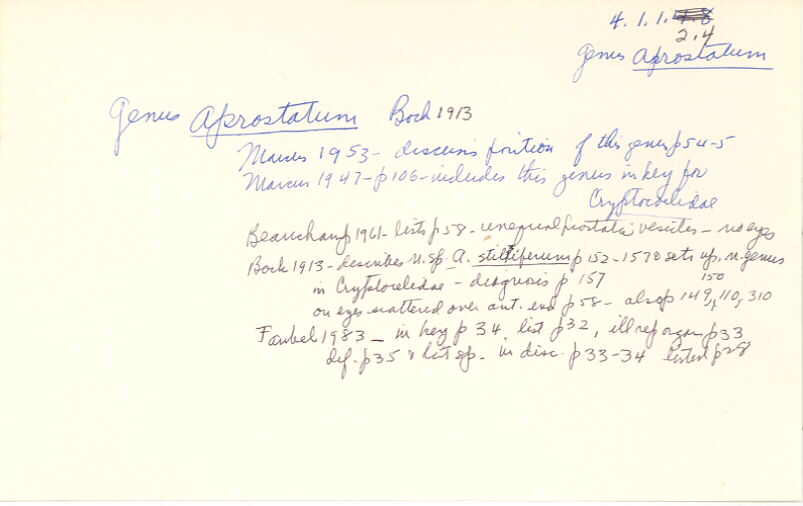 4.1.1.
2.4
Genus Aprostatum
Genus Aprostatum Bock 1913
Marcus 1953 - discuss position of this genus p 54-5
Marcus 1947 - p 106 - includes this genus in key for
Cryptocoelidae
Beauchamp 1961 - lists p 58 - unequal prostatic vesicles - no eyes
Bock 1913 - describes n. sp. A. stiliferum p 152-157 & sets up n. genus
in Cryptocelidae - diagnosis p 157
150
on eyes scattered over ant. end p 58 - also p 149, 110, 310
Faubel 1983 - in key p 34, list p 32, ill rep organ p 33
def. p 35 & list sp. in disc. p 33-34 listed p 28